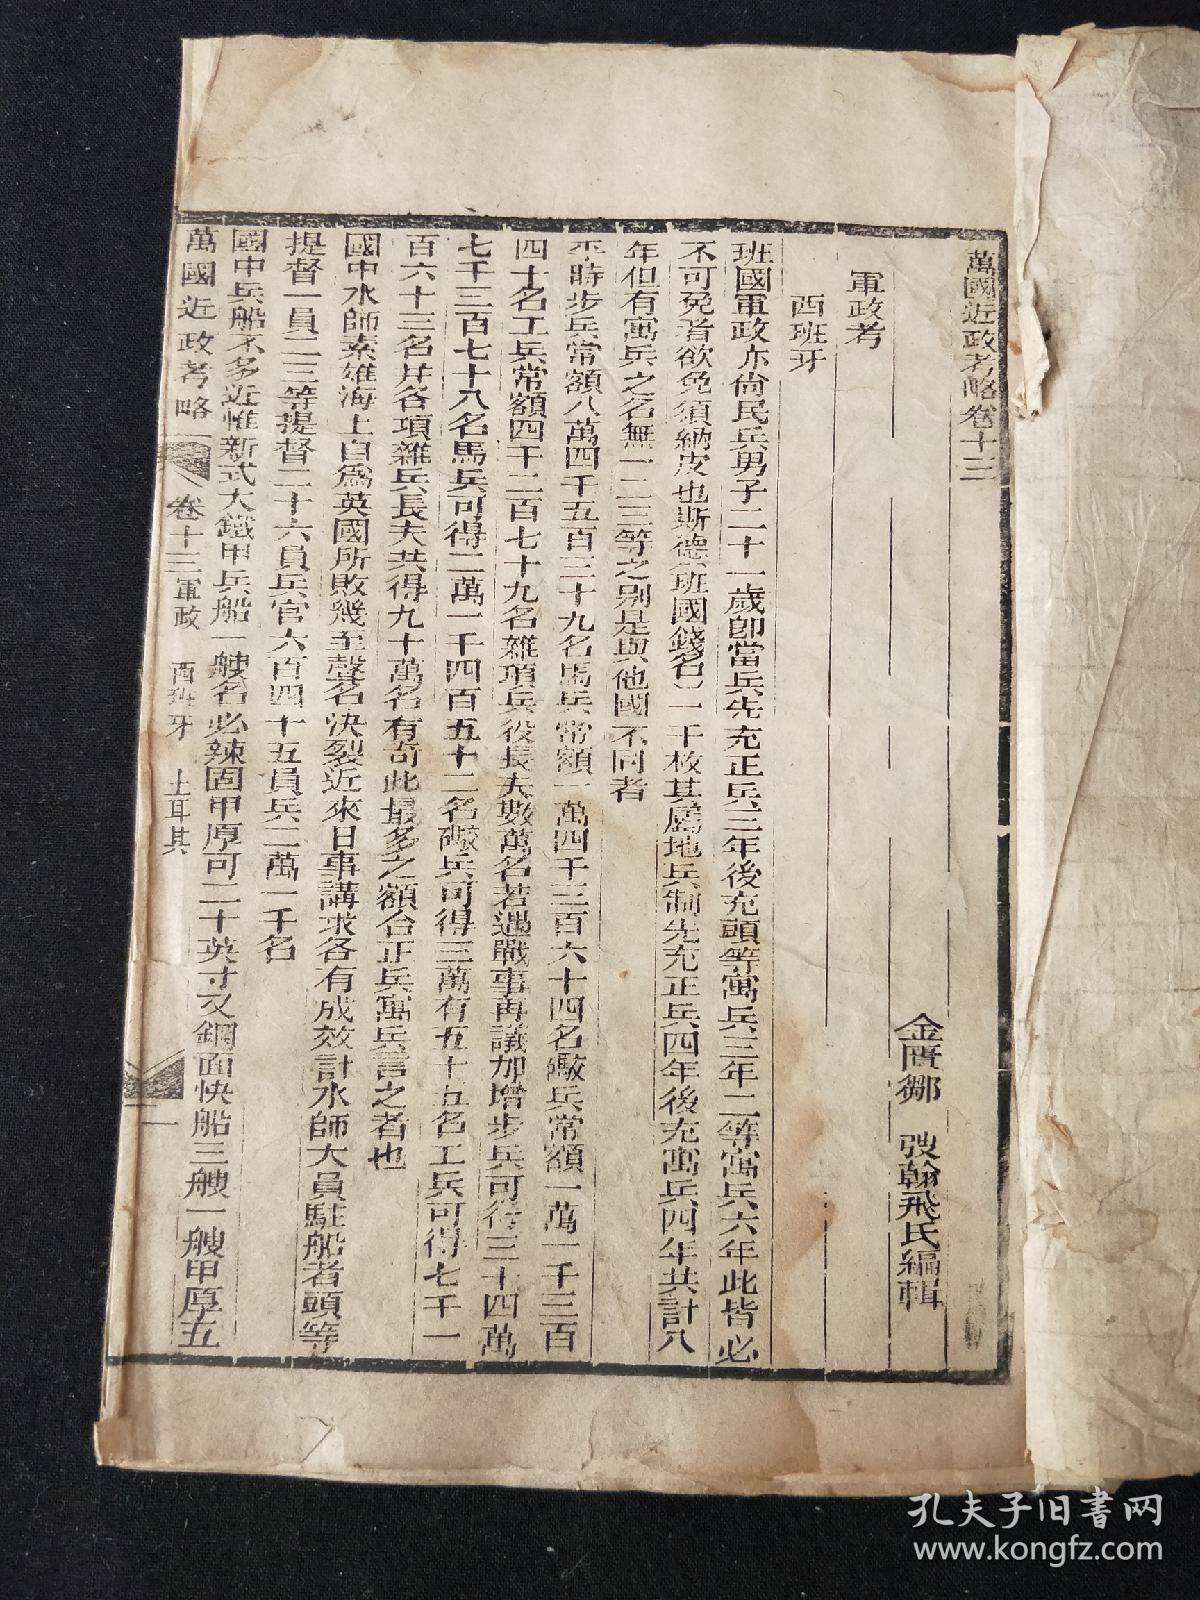 萬國近政考略卷十三
金匱鄒 弢翰飛氏編輯
軍政考
西班牙
班國軍政亦尙民兵男子二十一歲卽當兵先充正兵三年後充頭等寓兵三年二等寓兵六年此皆必
不可免者欲免須納皮也斯德(班國錢名)一千枚其屬地兵制先充正兵四年後充寓兵四年共計八
年但有寓兵之名無一二三等之別是與他國不同者
平時步兵常額八萬四千五百三十九名馬兵常額一萬四千三百六十四名礮兵常額一萬一千三百
四十名工兵常額四千二百七十九名雜項兵役長夫數萬名若遇戰事再議加增步兵可得三十四萬
七千三百七十八名馬兵可得二萬一千四百五十二名礮兵可得三萬有五十五名工兵可得七千一
百六十三名幷各項雜兵長夫共得九十萬名有奇此最多之額合正兵寓兵言之者也
國中水師素雄海上自爲英國所敗幾至聲名決裂近來日事講求各有成效計水師大員駐船者頭等
提督一員二三等提督二十六員兵官六百四十五員兵二萬一千名
國中兵船不多近惟新式大鐵甲兵船一艘名必辣固甲厚可二十英寸又鋼面快船三艘一艘甲厚五
萬國近政考略 卷十三軍政 西班牙 土耳其 一
孔夫子旧书网
www.kongfz.com